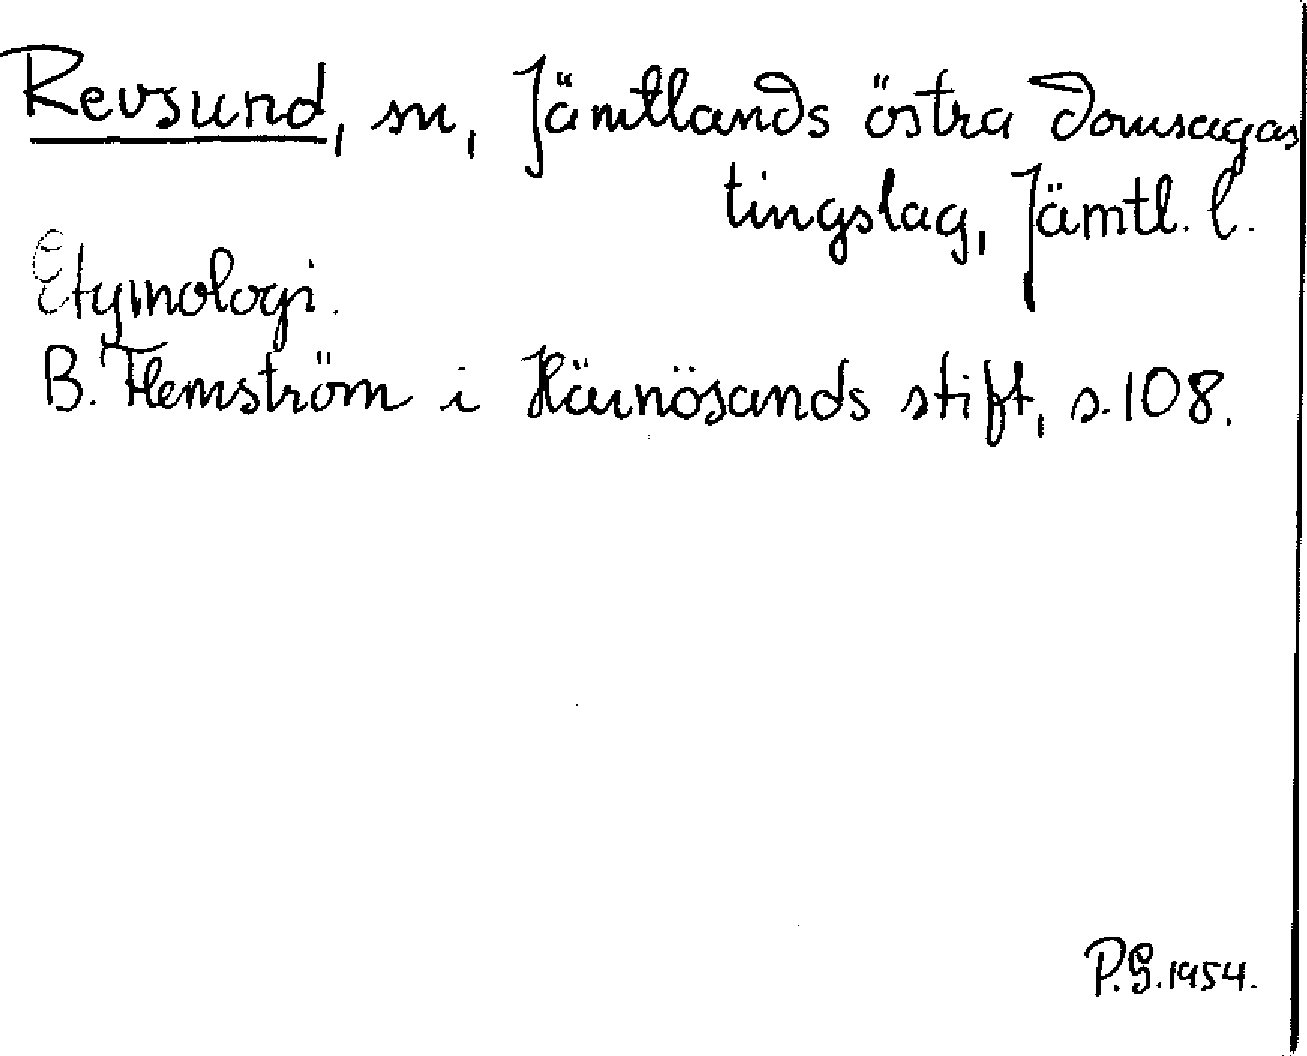 Revsund, sn, Jämtlands östra domsagas
tingslag, Jämtl. l.
Etymologi.
B. Flemström i Härnösands stift, s. 108.
P.G. 1954.